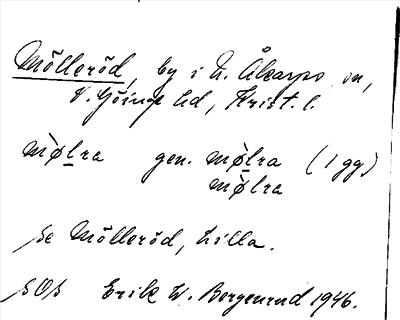 Mölleröd, by i N. Åkarps sn,
V. Göinge hd, Krist. l.
mø̀lra gen. mø̀lra (1 gg)
mø̀lra
se Mölleröd, Lilla.
sOs Erik W. Bergenrud 1946.